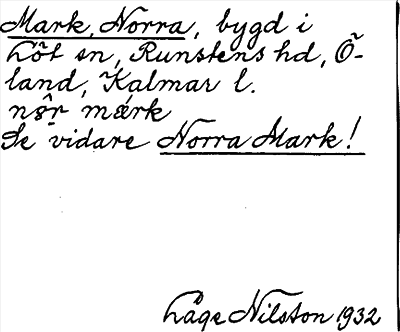 Mark, Norra, bygd i
Löt sn, Runstens hd, Ö-
land, Kalmar l.
nôr mærk
Se vidare Norra Mark!
Låge Nilston 1932